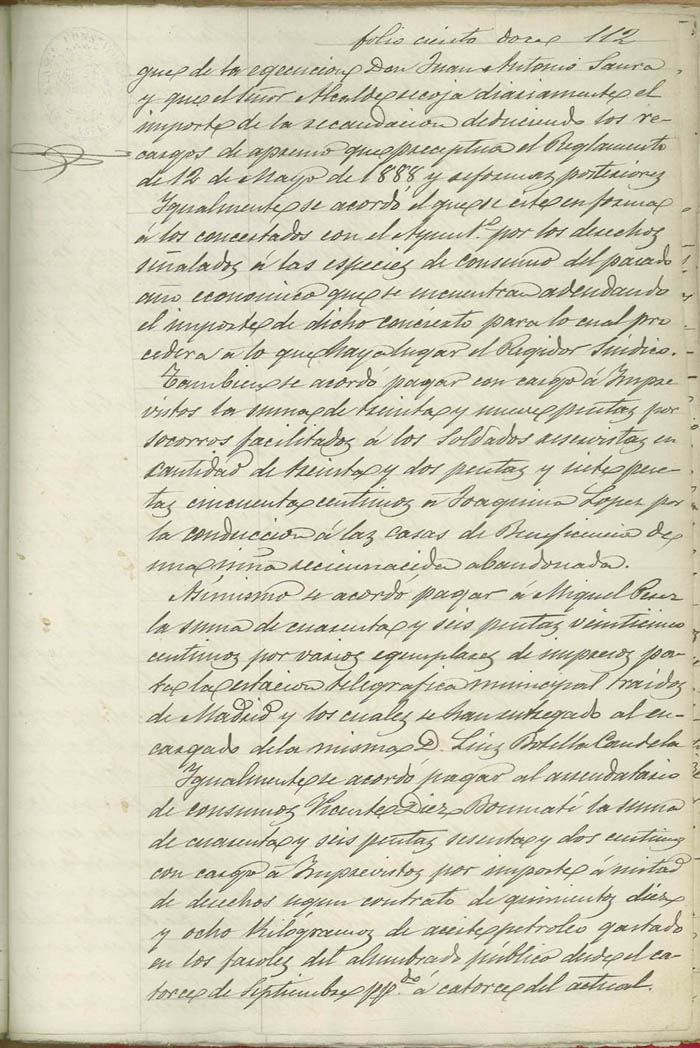 folio ciento doce 112
que de la egecucion Don Juan Antonio Saura
y que el Señor Alcalde recoja diariamente el
importe de la recaudacion deduciendo los re-
cargos de apremio que preceptua el Reglamento
de 12 de Mayo de 1888 y reformas posteriores
Igualmente se acordó el que se este en forma
á los concertados con el Ayunt.º por los derechos
señalados á las especies de consumo del pasado
año economico que se encuentran adeudando
el importe de dicho concierto para lo cual pro
cedera a lo que haya lugar el Regidor Sindico.
Tambien se acordó pagar con cargo á Impre
vistos la suma de treinta y nueve pesetas por
socorros facilitados á los Soldados reservistas en
cantidad de treinta y dos pesetas y siete pese-
tas cincuenta centimos á Joaquina Lopez por
la conduccion á las casas de Beneficencia de
una niña recien nacida abandonada.
Asimismo se acordó pagar á Miguel Perez
la suma de cuarenta y seis pesetas veinticinco
centimos por varios egemplares de impresos pa-
ra la estacion telegrafica municipal traidos
de Madrid y los cuales se han entregado al en-
cargado de la misma D. Luis Botella Candela
Igualmente se acordó pagar al arrendatario
de consumos Vicente Diez Bonmatí la suma
de cuarenta y seis pesetas sesenta y dos centimos
con cargo á Imprevistos por importe á mitad
de derechos segun contrato de quinientos diez
y ocho Kilógramos de aceite petroleo gastado
en los faroles del alumbrado público desde el ca-
torce de Septiembre pp.do á catorce del actual.